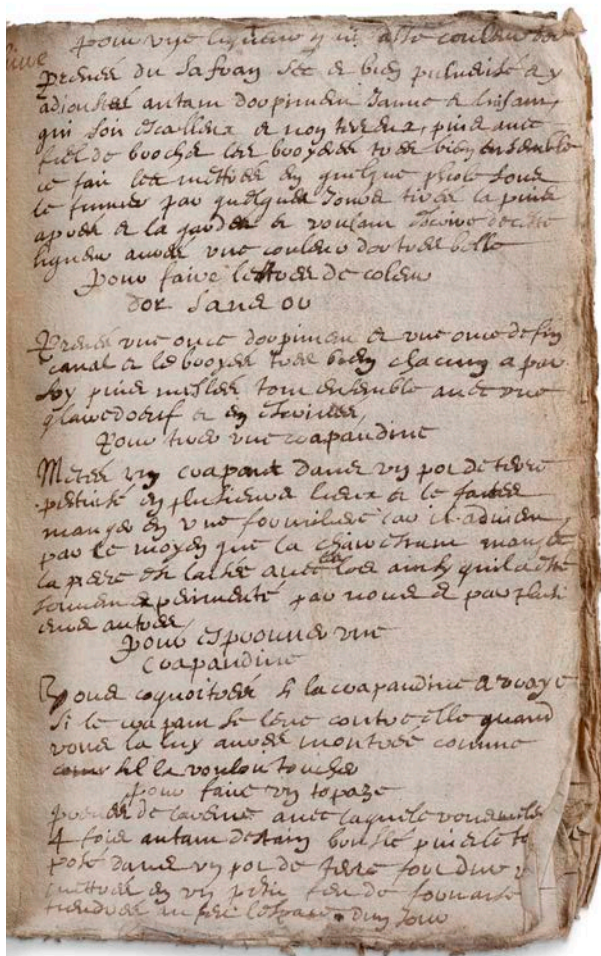 pour une liqueur qui aye couleur dor
Prenes du safran sec et bien pulverisé et y
adioustes autant dorpiment Jaune et luisant,
qui soit escalleux et non terreux, puis avec
fiel de beuche les broyeres tres bien ensemble
ce fait les mettres en quelque phiole soubz
le fumier par quelques Jours tires la puis
apres et la gardes et voulant escrire de cette
liqueur aures une couleur dor tres belle
Pour faire lettres de coleur
dor sans or
Prenes une once dorpiment et une once de fin
et le broyes tres bien chacung a par
soy puis mesles tout ensemble avec une
glaire doeuf et en escrires
Pour tirer une crapaudine
Metes un crapaut dans un pot de terre
pertuisé en plusieurs lieux et le faites
manger en une formiliere car il advient
par le moyen que la chair estant mangee
la piere est laissee avec les os ainsy quil a esté
souvent experimenté par nous et par plusi
eurs autres
Pour esprouver une
crapaudine
Vous cognoitres si la crapaudine est vraye
si le crapaut se leve contre elle quand
vous la luy aures montree comme
sil la vouloit toucher
pour faire un topaze
prenes de laquele vous
4 fois autant destain puis le
pose dans un pot de terre
mettres en un petit feu de fornaise
tiendres au feu lespace dun Jour